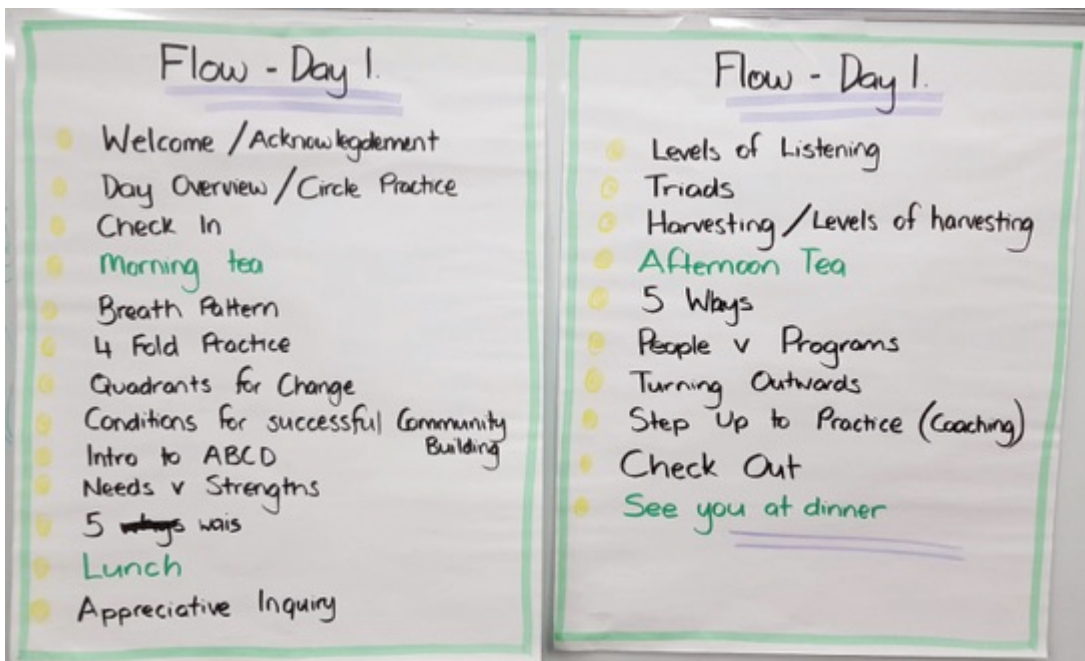 Flow - Day 1.
Welcome / Acknowlegdement
Day Overview / Circle Practice
Check In
Morning tea
Breath Pattern
4 Fold Practice
Quadrants for Change
Conditions for successful Community
Building
Intro to ABCD
Needs v Strengths
5 wais
Lunch
Appreciative Inquiry
Flow - Day 1.
Levels of Listening
Triads
Harvesting / Levels of harvesting
Afternoon Tea
5 Ways
People v Programs
Turning Outwards
Step Up to Practice (Coaching)
Check Out
See you at dinner